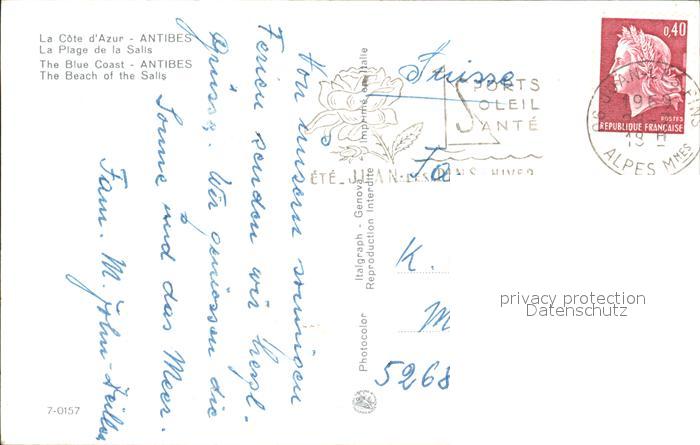 La Côte d'Azur - ANTIBES
La Plage de la Salis
The Blue Coast - ANTIBES
The Beach of the Salis
Von unsern sonnigen
Ferien senden wir herzl.
Grüsse. Wir geniessen die
Sonne und das Meer.
Fam. M. John-
7-0157
Photocolor
Italgraph - Genova
Imprimé en Italie
Reproduction Interdite
SPORTS
SOLEIL
SANTÉ
ÉTÉ JUAN-LES-PINS HIVER
0,40
POSTES
REPUBLIQUE FRANÇAISE
19 H
ALPES MMES
Suisse
Fa
K.
M
5268
privacy protection
Datenschutz